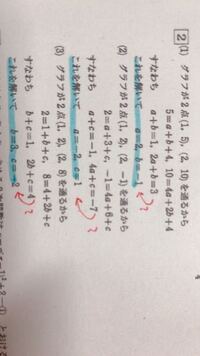 2 (1) グラフが2点(1, 5), (2, 10)を通るから
5=a+b+4, 10=4a+2b+4
すなわち a+b=1, 2a+b=3
これを解いて a=2, b=-1
(2) グラフが2点(1, 2), (2, -1)を通るから
2=a+3+c, -1=4a+6+c
すなわち a+c=-1, 4a+c=-7
これを解いて a=-2, c=1
(3) グラフが2点(1, 2), (2, 8)を通るから
2=1+b+c, 8=4+2b+c
すなわち b+c=1, 2b+c=4
これを解いて b=3, c=-2